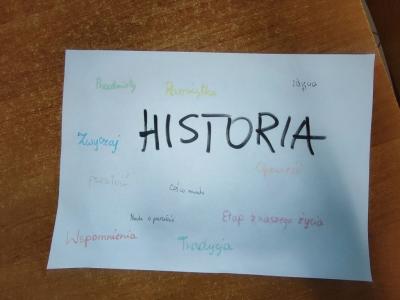 Przedmioty
Pamiątka
HISTORIA
Zwyczaj
Opowieść
przeszłość
Nauka o przeszłości
Etap z naszego życia
Wspomnienia
Tradycja